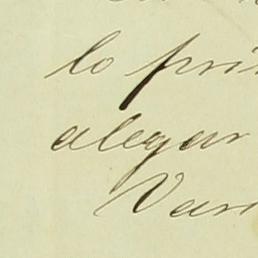 lo pri
alegar
Var